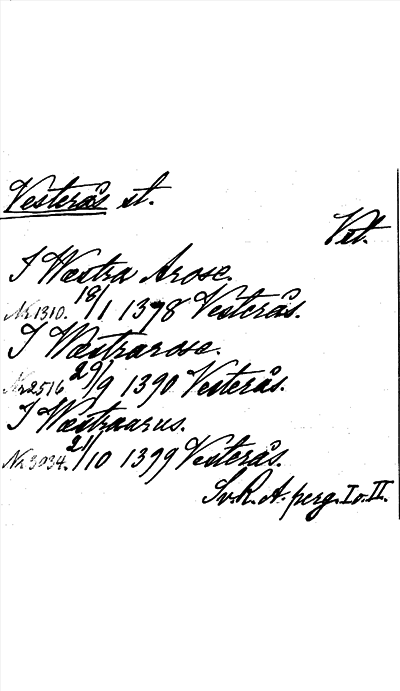 Vesterås st.
Vst.
I Wæstra Arose.
Nr 1310. 18/1 1378 Vesterås.
I Wæstrarose.
Nr 2516 29/9 1390 Vesterås.
I Wæstraarus.
Nr 3034. 21/10 1399 Vesterås.
Sv. R. A. perg. I o. II.